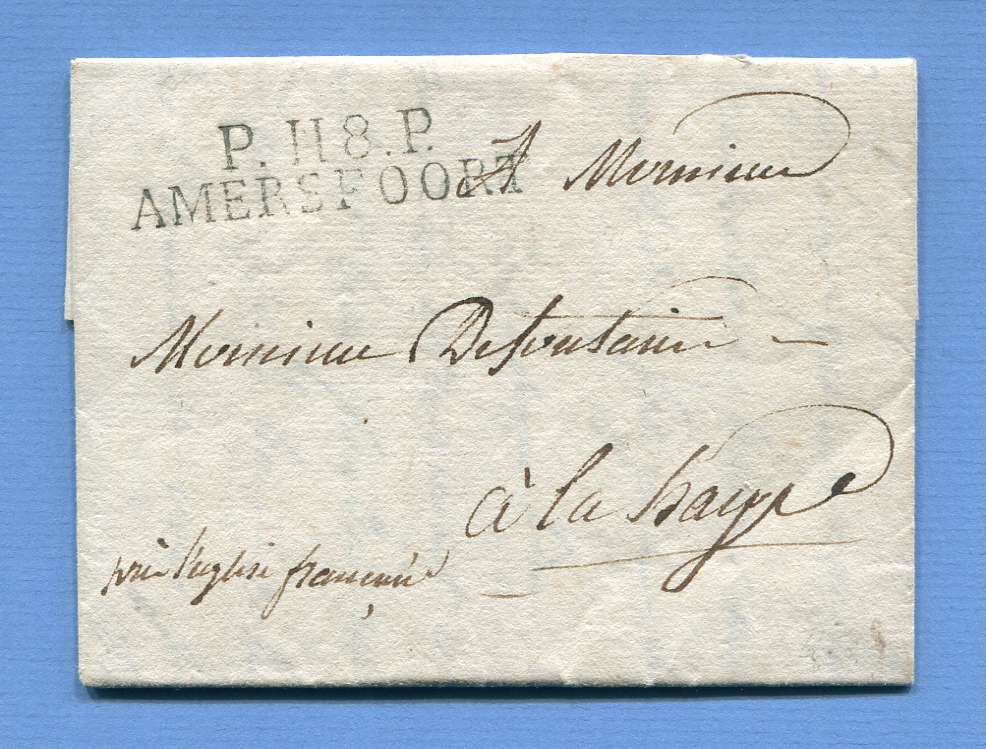 P. 118. P.
AMERSFOORT
A Monsieur
Monsieur Desfontaines
à la haye
près l'eglise françaisé